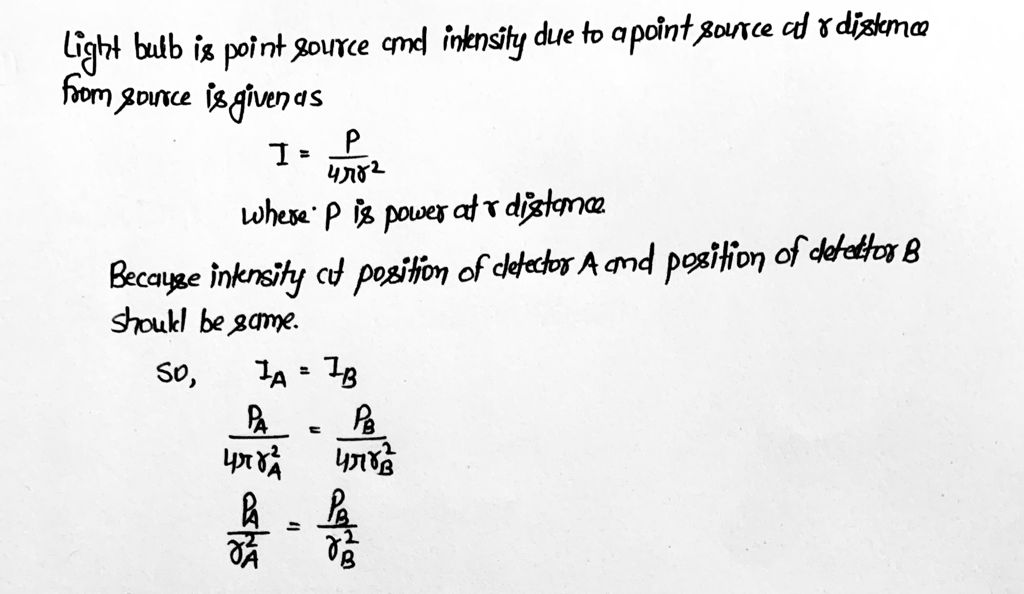 Light bulb is point source and intensity due to a point source at r distance
from source is given as
I = P / 4πr²
where P is power at r distance.
Because intensity at position of detector A and position of detector B
should be same.
So, I_A = I_B
P_A / 4πr_A² = P_B / 4πr_B²
P_A / r_A² = P_B / r_B²